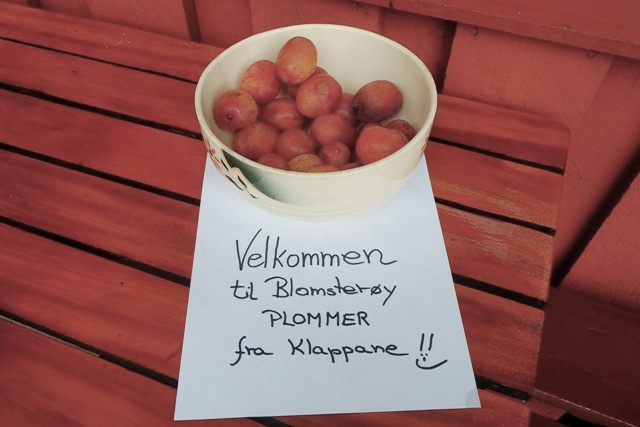 Velkommen
til Blomsterøy
PLOMMER
fra Klappane !!